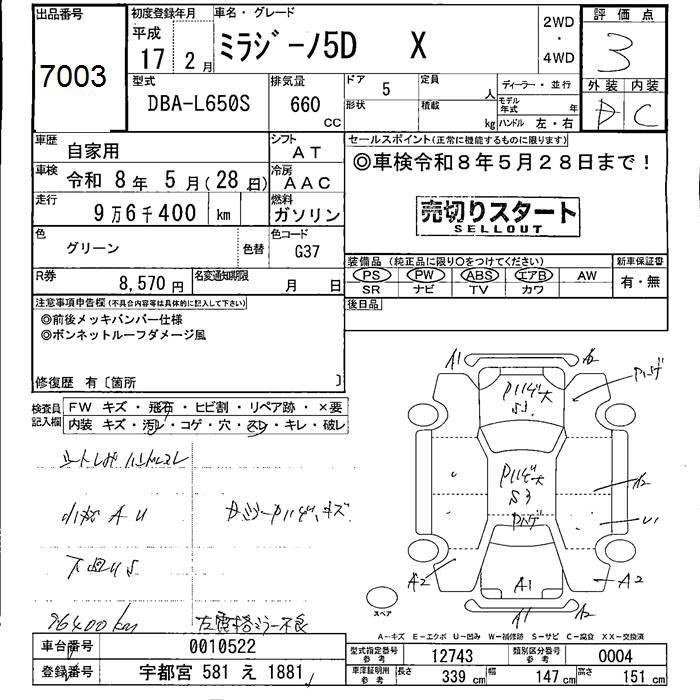 出品番号
7003
初度登録年月
平成
17 2 月
車名・グレード
ミラジーノ5D X
2WD
・
4WD
評価点
3
外装 内装
D C
型式
DBA-L650S
排気量
660
CC
ドア
5
定員
人
ディーラー・並行
形状
積載
kg
モデル年式
年
ハンドル 左・右
車歴
自家用
シフト
AT
車検 令和 8 年 5 月 (28 日)
冷房
AAC
走行
9万6千400 km
燃料
ガソリン
色
グリーン
色替
色コード
G37
R券
8,570 円
名変通知期限
月 日
セールスポイント(正常に機能するものに限ります)
◎車検令和8年5月28日まで！
売切りスタート
SELLOUT
装備品 (純正品に限り○をつけてください)
新車保証書
PS PW ABS エアB AW
有・無
SR ナビ TV カワ
後日品
注意事項申告欄(不具合内容等は具体的に記入して下さい)
◎前後メッキバンパー仕様
◎ボンネットルーフダメージ風
修復歴 有〔箇所 〕
検査員記入欄
FW キズ・飛石・ヒビ割・リペア跡・×要
内装 キズ・汚レ・コゲ・穴・スレ・キレ・破レ
小キズ A U
下回りS
96400km
A1 A2
S3
S3
A2
U1
A2 A1 A2
A1 A2
スペア
A-キズ E-エクボ U-凹み W-補修跡 S-サビ C-腐食 XX-交換済
車台番号
0010522
登録番号
宇都宮 581 え 1881
型式指定番号
参考
12743
類別区分番号
参考
0004
車庫証明用
参考
長さ
339 cm
幅
147 cm
高さ
151 cm